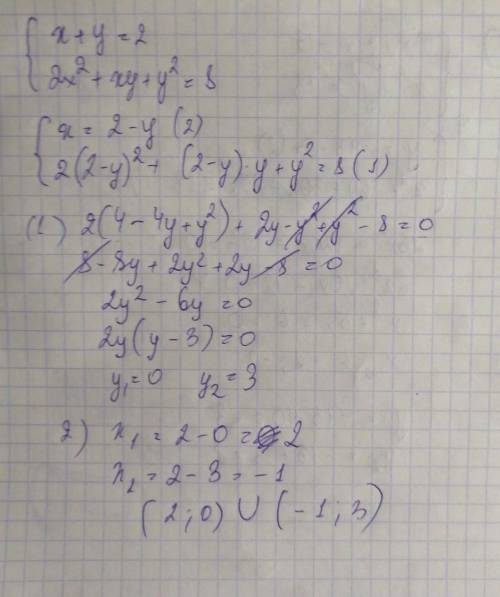 x + y = 2
2x² + xy + y² = 8
x = 2 - y (2)
2(2-y)² + (2-y)·y + y² = 8 (1)
(1) 2(4 - 4y + y²) + 2y - y² + y² - 8 = 0
8 - 8y + 2y² + 2y - 8 = 0
2y² - 6y = 0
2y(y - 3) = 0
y₁ = 0 y₂ = 3
2) x₁ = 2 - 0 = 2
x₂ = 2 - 3 = -1
(2; 0) ∪ (-1; 3)